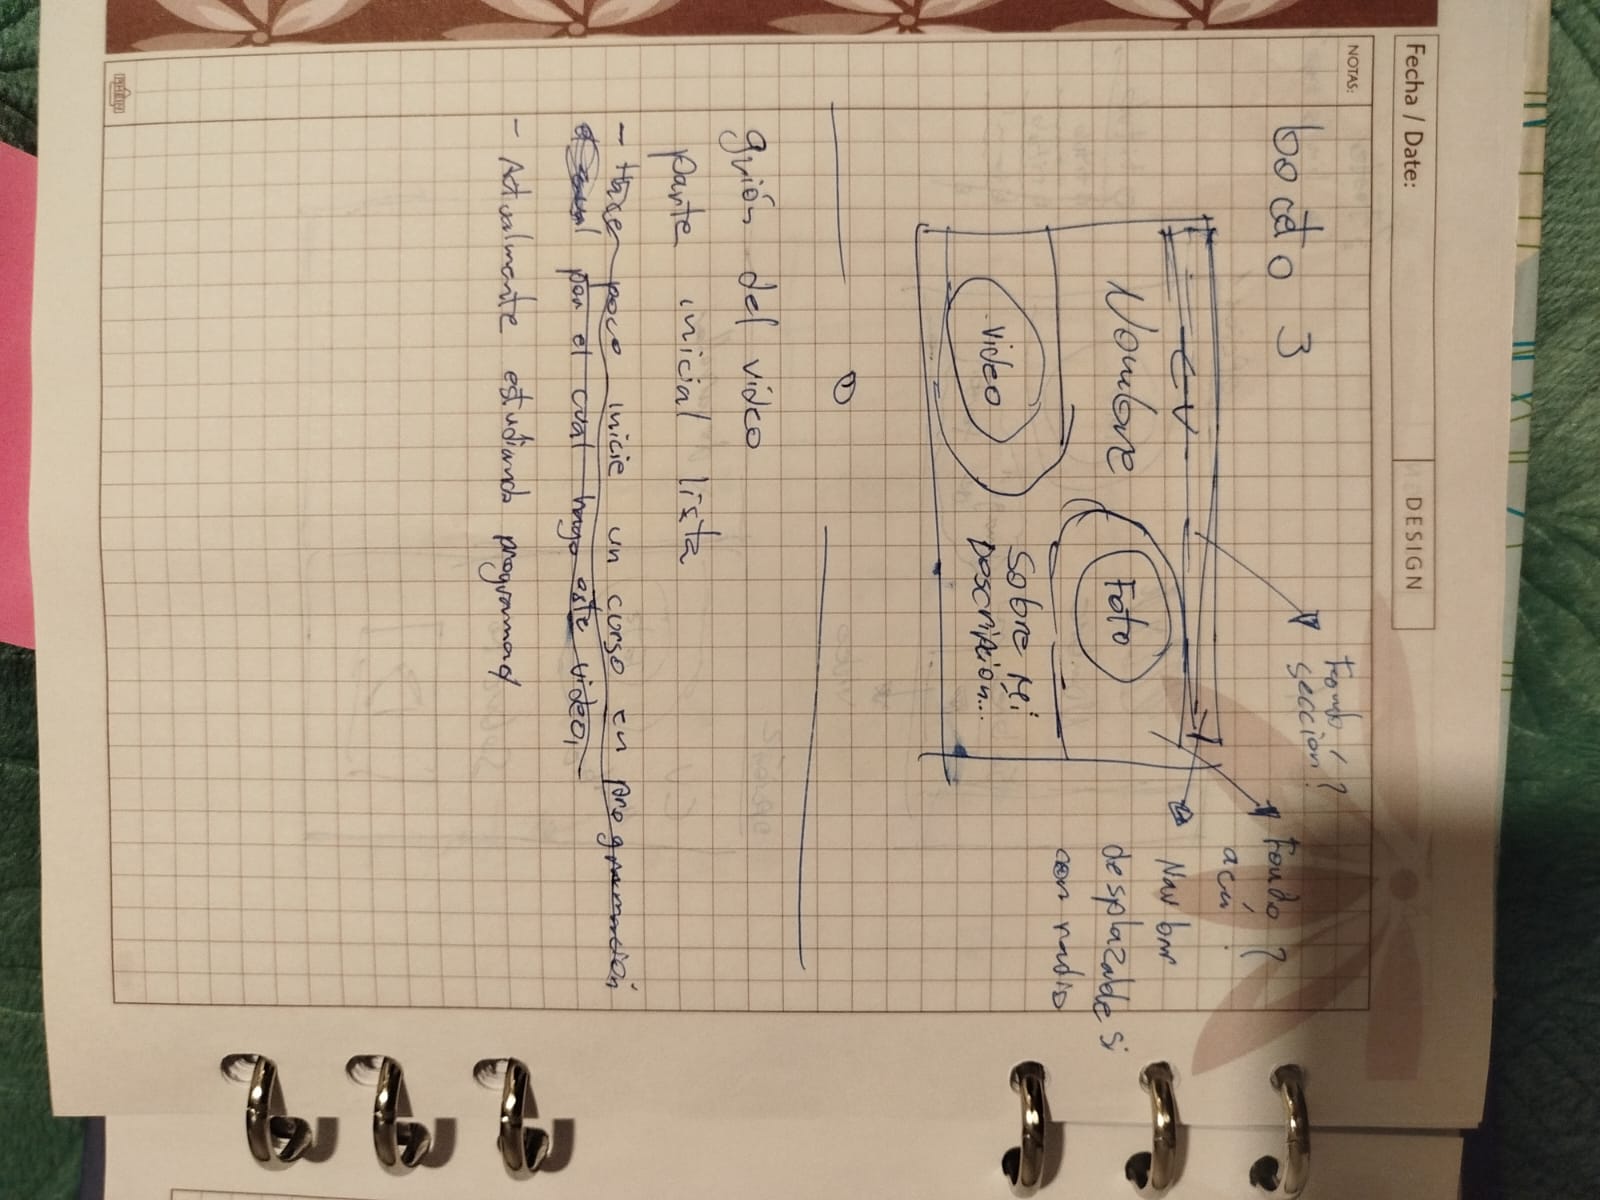 Fecha / Date:
DESIGN
NOTAS:
boceto 3
fondo?
sección?
fondo?
acu?
Nav bar
desplazable si
con radio
CV
Nombre
Foto
Video
Sobre Mi
Descripción...
guión del video
Parte inicial lista
- Hace poco inicie un curso en programación
por el cual hago este video,
- Actualmente estudiando programmng